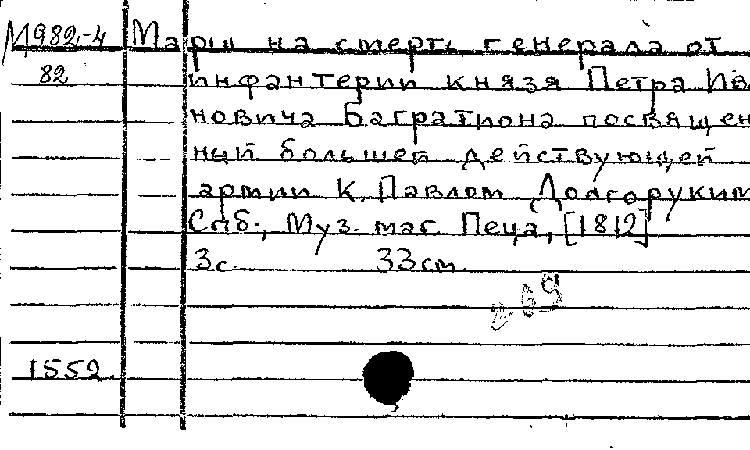 М982-4 Марш на смерть генерала от
82 инфантерии князя Петра Ив
новича Багратиона посвящен
ный большей действующей
армии К. Павлом Долгоруким
Спб., Муз. маг. Пеца, [1812]
3с. 33см
1552